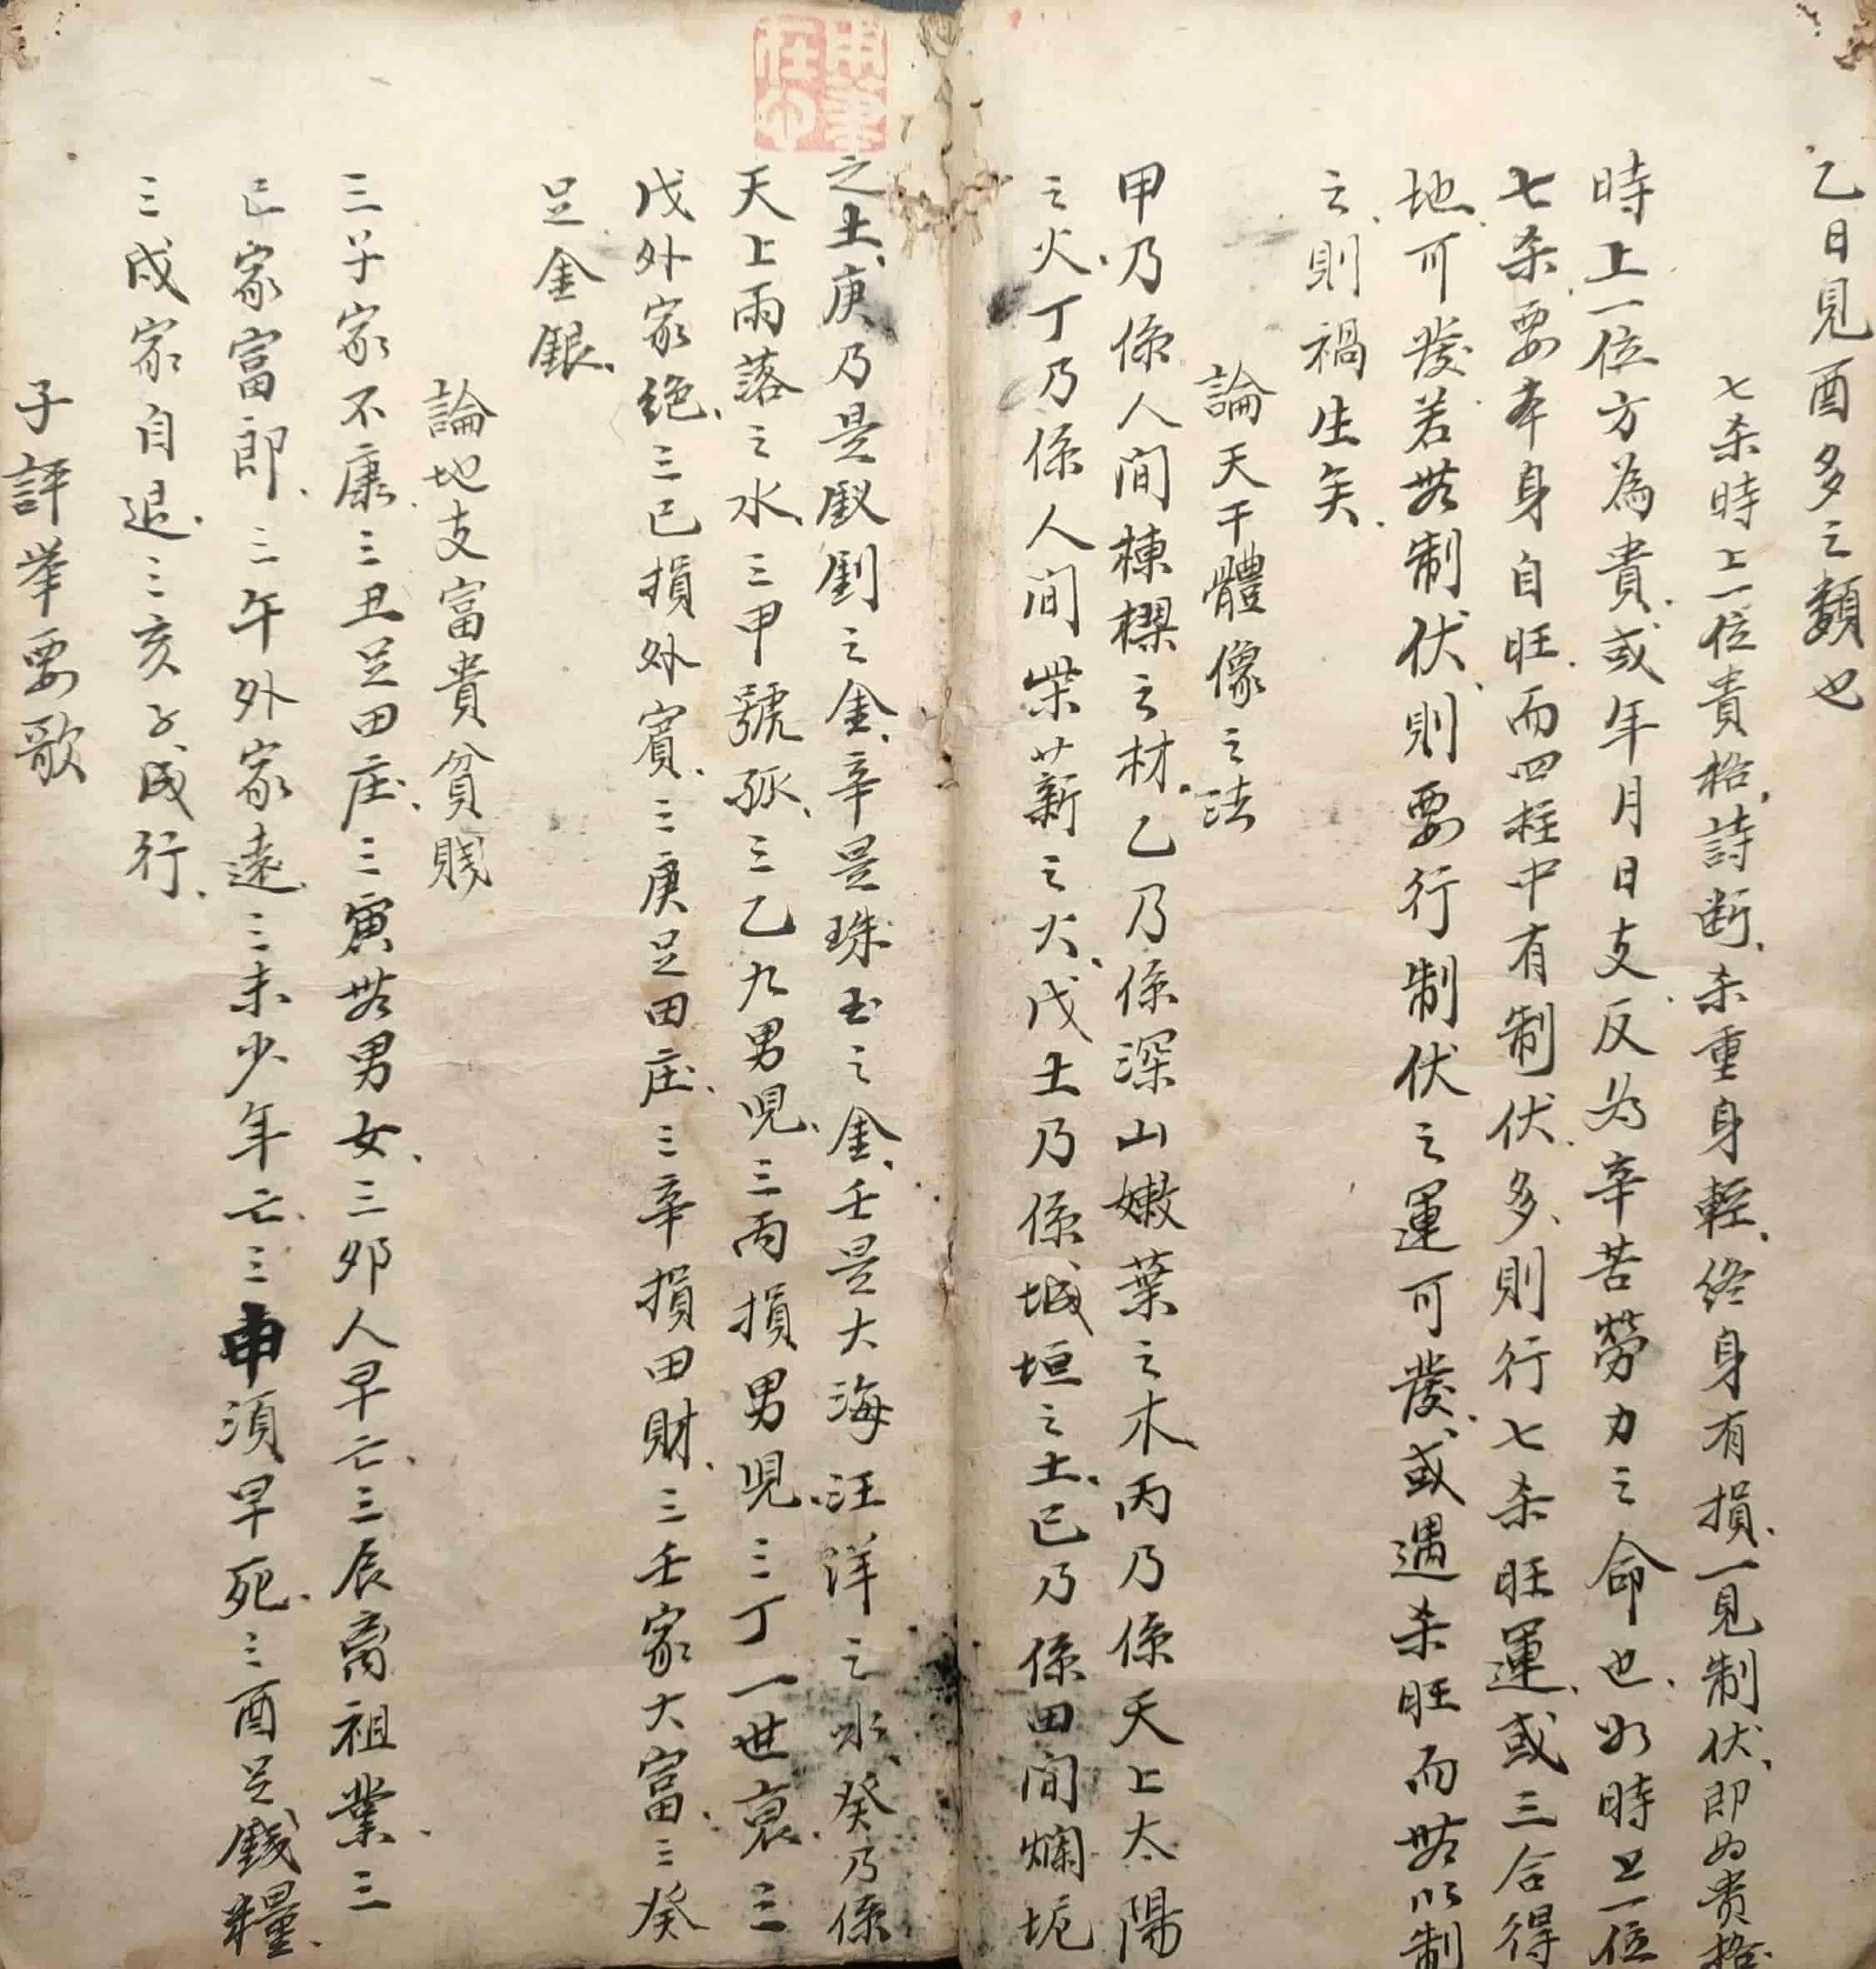 乙日見酉多之類也
七杀時上一位貴格詩断杀重身輕終身有損一見制伏即为贵格
時上一位方為貴或年月日支反为辛苦勞力之命也如時上一位
七杀要本身自旺而四柱中有制伏多則行七杀旺運或三合得
地可發若無制伏則要行制伏之運可發或遇杀旺而無以制
之則禍生矣
論天干體像之法
甲乃係人间棟樑之材乙乃係深山嫩葉之木丙乃係天上太陽
之火丁乃係人间柴薪之火戊土乃係城垣之土己乃係田间爛坭
之土庚乃是釵釧之金辛是珠玉之金壬是大海汪洋之水癸乃係
天上雨落之水三甲號孤三乙九男児三丙損男児三丁一世哀三
戊外家绝三己損外賓三庚足田庄三辛損田財三壬家大富三癸
足金銀
論地支富貴貧賤
三子家不康三丑足田庄三寅無男女三卯人早亡三辰离祖業三
巳家富郎三午外家遠三未少年亡三申須早死三酉足錢糧
三戌家自退三亥子成行
子評举要歌